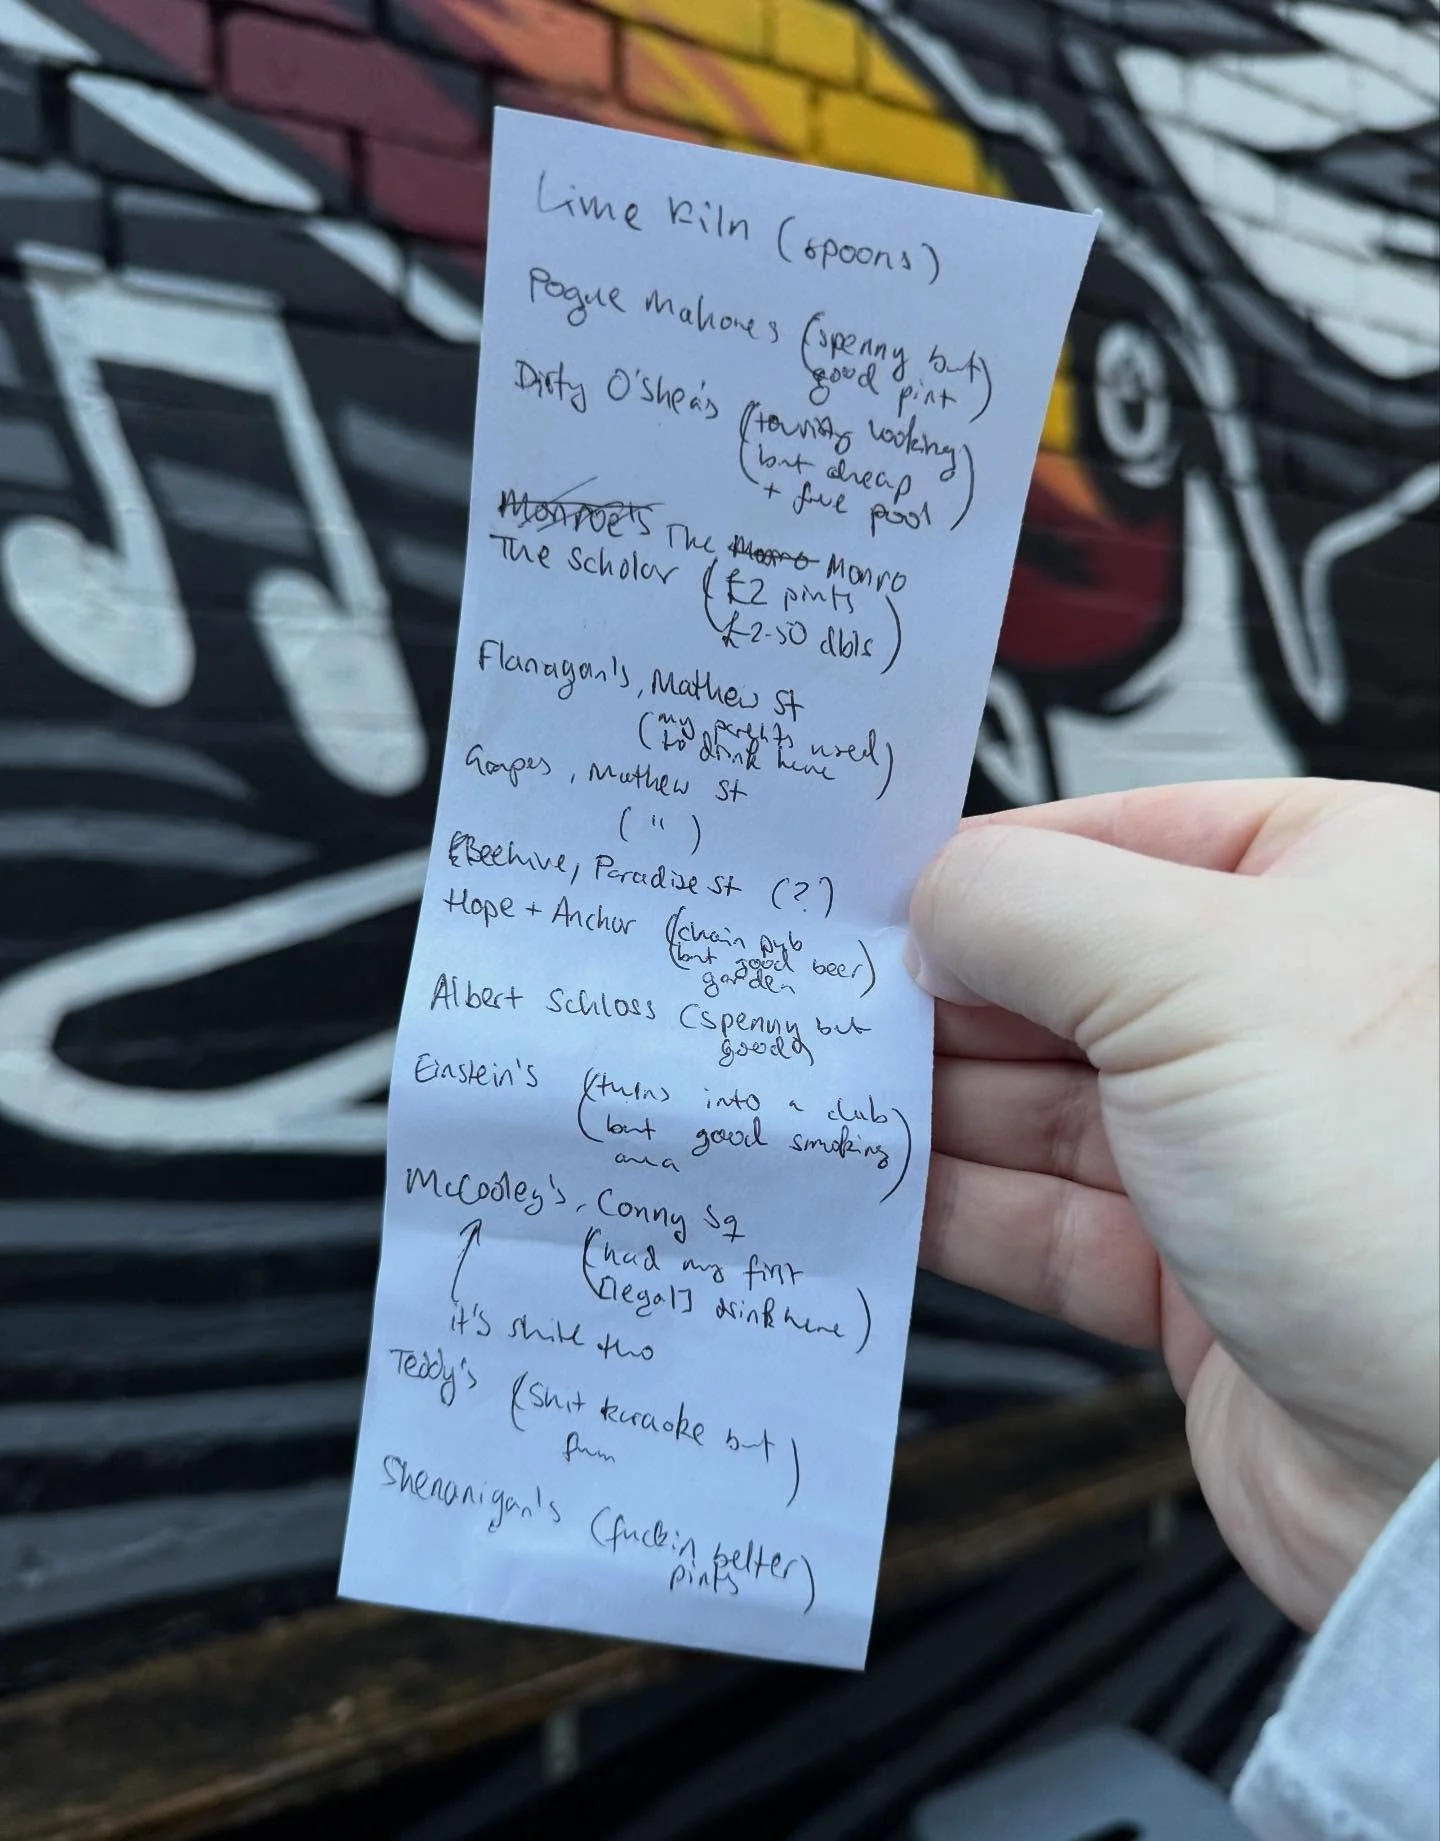 Lime Kiln (spoons)
Pogue Mahones (spenny but
good pint)
Dirty O'Shea's (touristy looking
but cheap
+ free pool)
Monroe's The Mono Monro
The Scholar (£2 pints
£2-50 dbls)
Flanagan's, Mathew St
(my parents used
to drink here)
Grapes, Mathew St
(")
Beehive, Paradise St (?)
Hope + Anchor (chain pub
but good beer
garden)
Albert Schloss (spenny but
good)
Einstein's (turns into a club
but good smoking
area)
McCooley's, Conny Sq
(had my first
[legal] drink here)
it's shite tho
Teddy's (shit karaoke but
fun)
Shenanigan's (fuckin belter
pints)